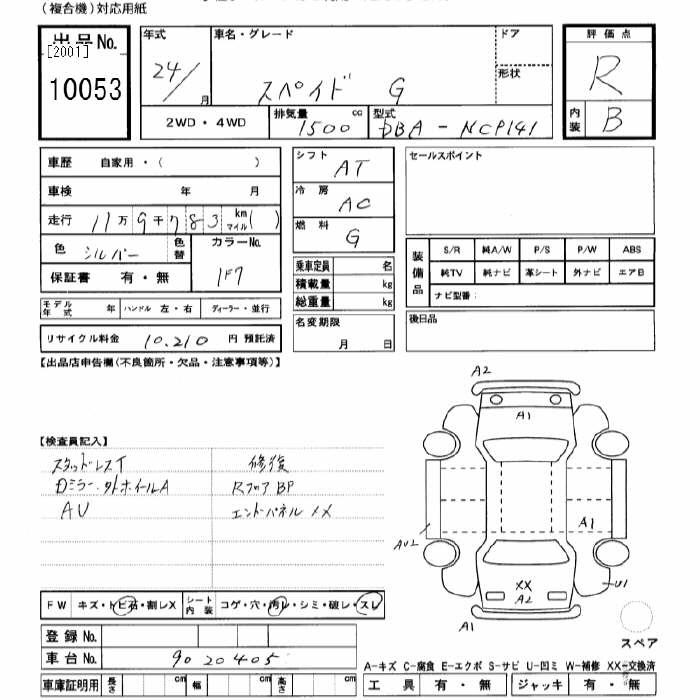 (複合機)対応用紙
出品No.
[2001]
10053
年式
24/
月
車名・グレード
スペイド G
ドア
形状
評価点
R
内装
B
2WD・4WD
排気量
1500 cc
型式
DBA-NCP141
車歴 自家用・( )
車検 年 月
走行 11万9千783 km マイル( )
色 シルバー 色替
カラーNo.
1F7
保証書 有・無
シフト
AT
冷房
AC
燃料
G
乗車定員 名
積載量 kg
総重量 kg
セールスポイント
装備品
S/R 純A/W P/S P/W ABS
純TV 純ナビ 革シート 外ナビ エアB
ナビ型番:
モデル年式 年 ハンドル 左・右 ディーラー・並行
リサイクル料金 10,210 円 預託済
名変期限
月 日
後日品
【出品店申告欄(不良箇所・欠品・注意事項等)】
【検査員記入】
スタッドレスT 修復
Dミラー、外ホイールA RフロアBP
AU エンドパネル XX
A2
A1
A1
AU2
XX
A2
U1
A1
スペア
FW キズ・トビ石・割レX シート内装 コゲ・穴・汚レ・シミ・破レ・スレ
登録No.
車台No. 9020405
車庫証明用 長さ cm 幅 cm 高さ cm
A-キズ C-腐食 E-エクボ S-サビ U-凹ミ W-補修 XX-交換済
工具 有・無 ジャッキ 有・無